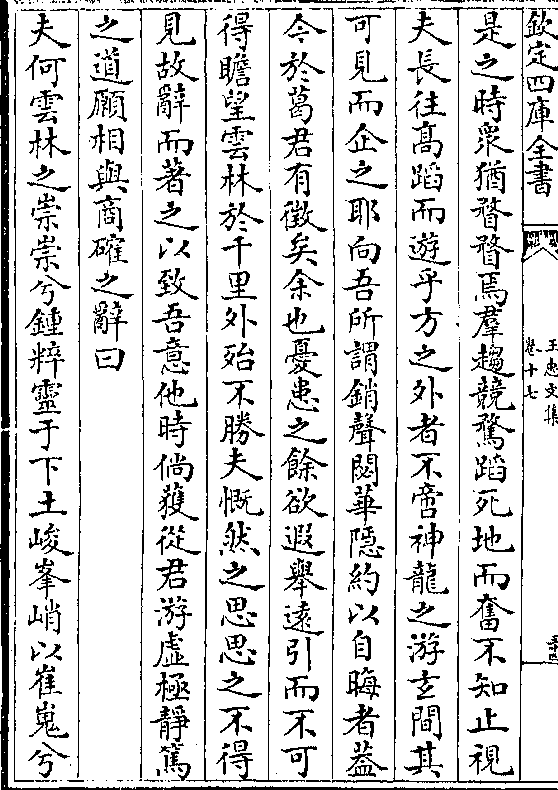 欽定四庫全書
王忠文集
卷十七
是之時衆猶瞀瞀焉羣趨競騖蹈死地而奮不知止視
夫長往髙蹈而遊乎方之外者不啻神龍之游玄間其
可見而企之耶向吾所謂銷聲閟華隠約以自晦者葢
今於葛君有徵矣余也憂患之餘欲遐舉遠引而不可
得瞻望雲林於千里外殆不勝夫慨然之思思之不得
見故辭而著之以致吾意他時倘獲從君游虛極靜篤
之道願相與商確之辭曰
夫何雲林之崇崇兮鍾粹靈于下土峻峯峭以崔嵬兮